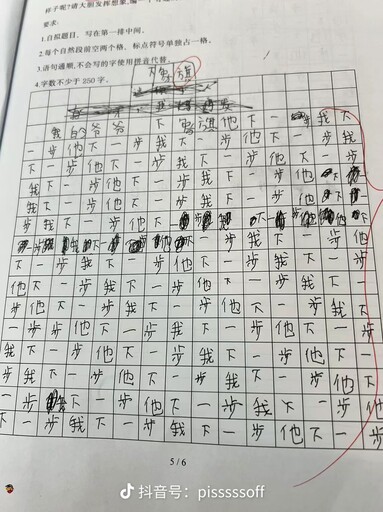 样子呢?请大胆发挥想象,编一个
要求:
1.自拟题目,写在第一排中间。
2.每个自然段前空两个格,标点符号单独占一格。
3.语句通顺,不会写的字使用拼音代替。
4.字数不少于 250 字。
下象旗
我和爷爷下象旗他下一步我下
一步他下一步我下一步他下一步我
下一步他下一步我下一步他下一步
我下一步他下一步我下一步他下
我下一步他下一步我下一步他
我下一步他下一步
我下一步我下一步他
下一步我下一步他下一步我下一步
他下一步我下一步他下一步我下一
步他下一步我下一步他下一步我下
一步步他下一步我下一步他下一步
我下一步他下一步我下一步他下一
步我下一步他下一步我下一步他下
一步下一步他下一步我下一步他
下一步我下一步我下一步他下一步
5 / 6
抖音号:pisssssoff